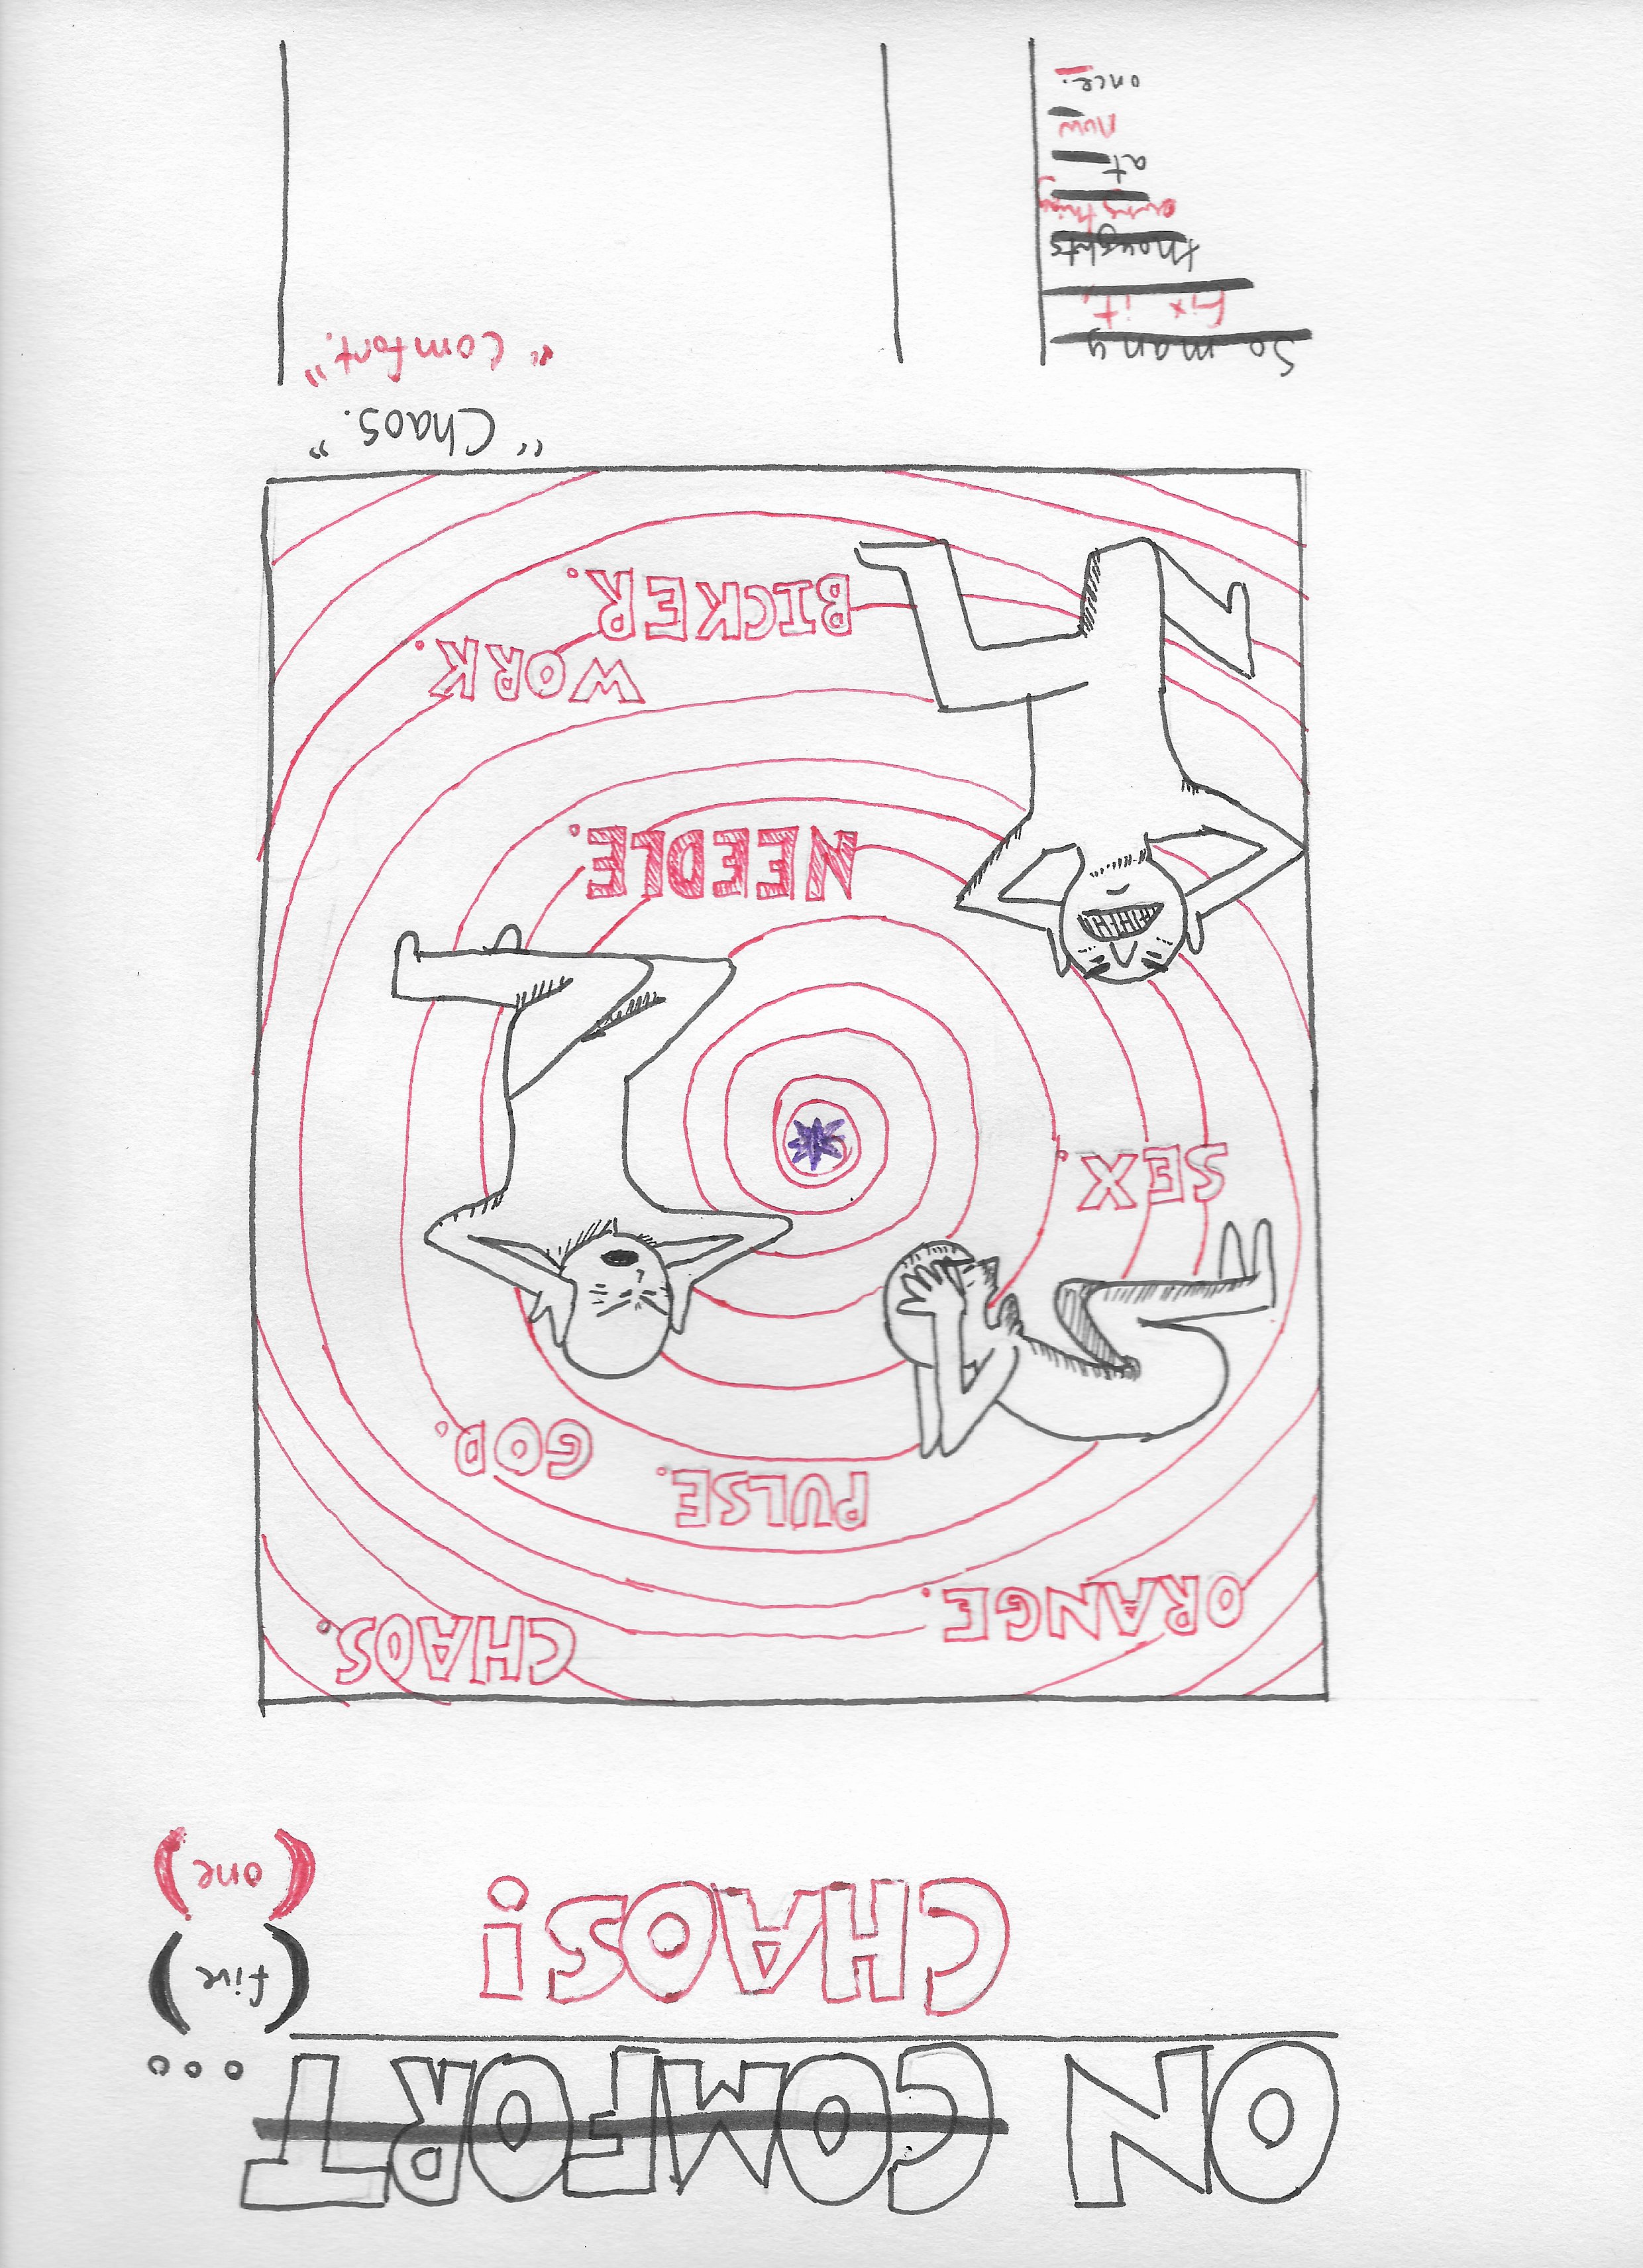 ON COMFORT...
CHAOS!
(five)
(one)
CHAOS.
ORANGE.
PULSE.
GOD.
SEX.
NEEDLE.
WORK.
BICKER.
"Chaos."
"Comfort."
So many
fix it,
thoughts
everything
at
now
once.